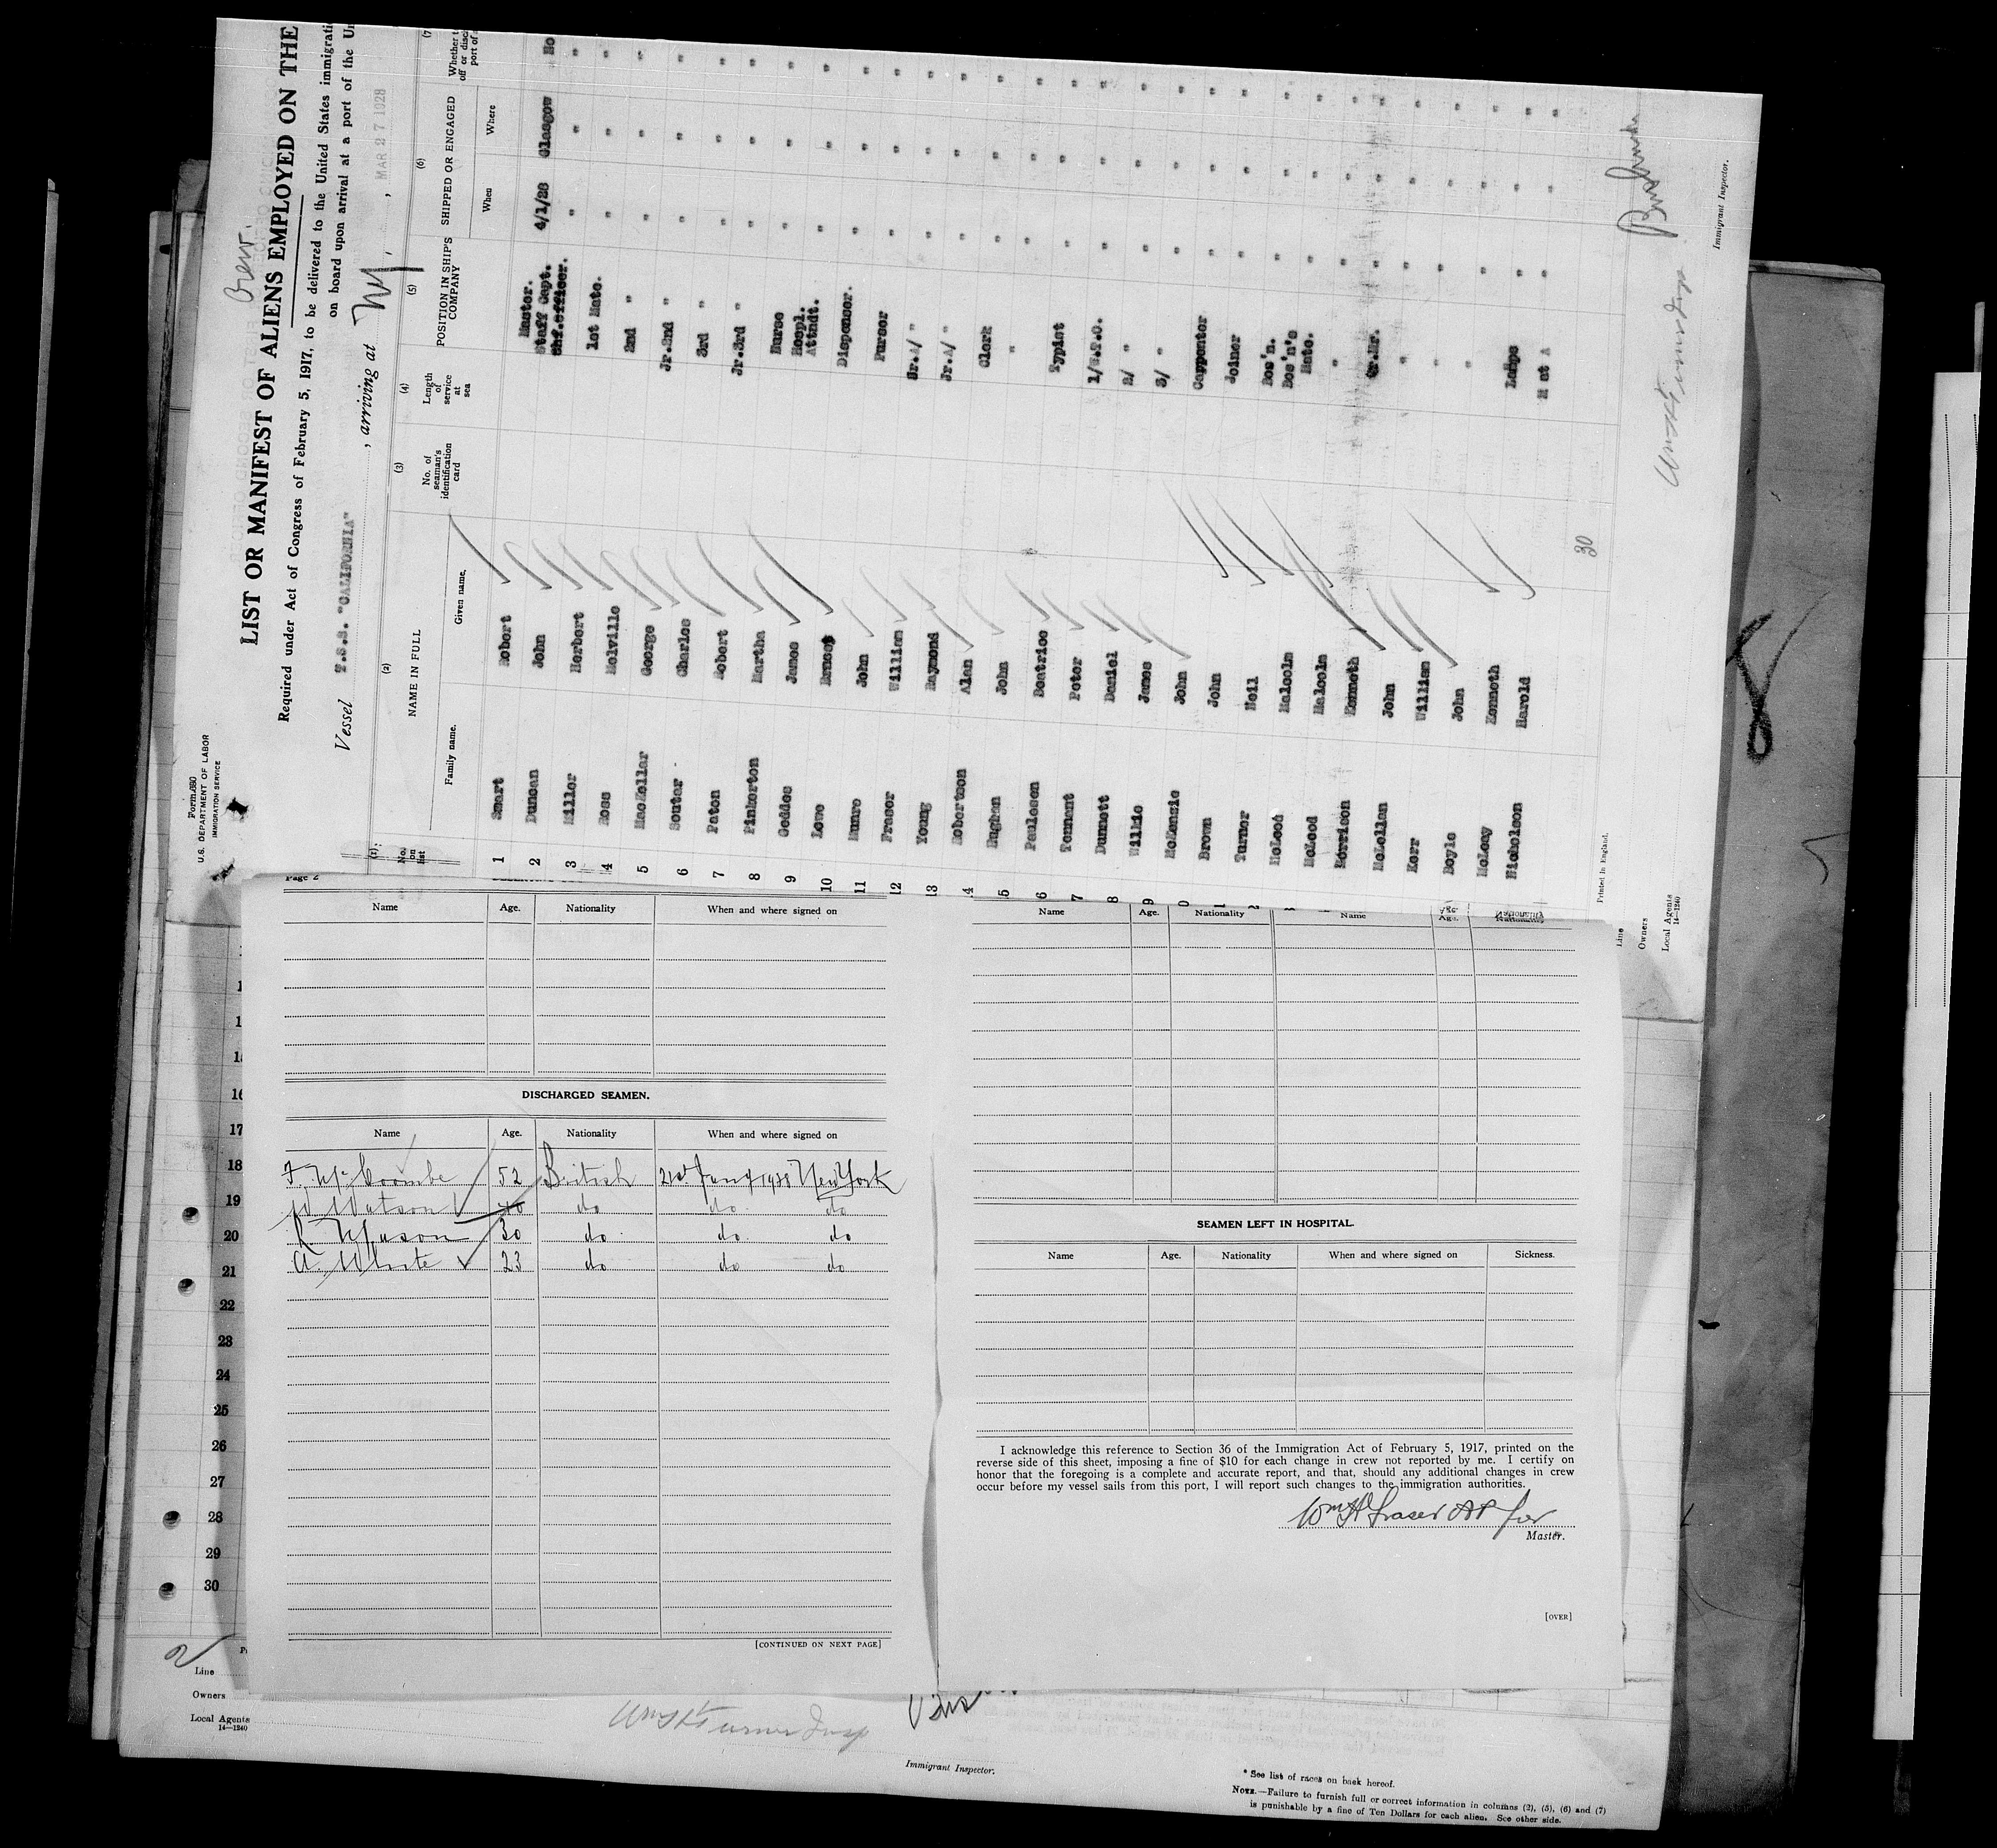 Crew.
LIST OR MANIFEST OF ALIENS EMPLOYED ON THE
Required under Act of Congress of February 5, 1917, to be delivered to the United States immigrati
on board upon arrival at a port of the Un
Form 680
U. S. DEPARTMENT OF LABOR
IMMIGRATION SERVICE
Vessel T.S.S. "CALIFORNIA", arriving at NY, MAR 27 1928
(1) (2) (3) (4) (5) (6) (7)
No. on list NAME IN FULL No. of seaman's identification card Length of service at sea POSITION IN SHIP'S COMPANY SHIPPED OR ENGAGED
Family name. Given name. When Where
1 Smart Robert Master. 4/1/28 Glasgow No
2 Duncan John Staff Capt. " " "
Chf.officer.
3 Miller Herbert 1st Mate. " " "
4 Ross Melville 2nd " " " "
5 MacKellar George Jr.2nd " " " "
6 Souter Charles 3rd " " " "
7 Paton Robert Jr.3rd " " " "
8 Pinkerton Martha Nurse " " "
9 Geddes James Hospl. Attndt. " " "
10 Lowe Ernest Dispenser. " " "
11 Munro John Purser " " "
12 Fraser William Sr.A/ " " " "
13 Young Raymond Jr.A/ " " " "
14 Robertson Alan Clerk " " "
15 Hughan John " " " "
6 Paulesen Beatrice Typist " " "
7 Tennant Peter 1/W.T.O. " " "
8 Dunnett Daniel 2/ " " " "
9 Wilkie James 3/ " " " "
0 McKenzie John Carpenter " " "
1 Brown John Joiner " " "
2 Turner Neil Bos'n. " " "
3 McLeod Malcolm Bos'n's Mate. " " "
McLeod Malcolm " " " "
Morrison Kenneth Qr.Mr. " " "
McLellan John " " " "
Kerr William " " " "
Boyle John " " " "
McLeay Kenneth Lamps " " "
Nicholson Harold M at A " " "
30
Printed in England.
Immigrant Inspector.
Line
Owners
Local Agents
14—1240
8
Page 2
Name Age. Nationality When and where signed on
DISCHARGED SEAMEN.
Name Age. Nationality When and where signed on
F. McCoombe 52 British 21st Jany 1928 New York
W Watson 40 do do do
R Mason 30 do do do
A. White 23 do do do
[CONTINUED ON NEXT PAGE]
Name Age. Nationality Name Age. Nationality
SEAMEN LEFT IN HOSPITAL.
Name Age. Nationality When and where signed on Sickness.
I acknowledge this reference to Section 36 of the Immigration Act of February 5, 1917, printed on the
reverse side of this sheet, imposing a fine of $10 for each change in crew not reported by me. I certify on
honor that the foregoing is a complete and accurate report, and that, should any additional changes in crew
occur before my vessel sails from this port, I will report such changes to the immigration authorities.
Wm H Fraser AP for
Master.
[OVER]
16
17
18
19
20
21
22
23
24
25
26
27
28
29
30
2
Line
Owners
Local Agents
14—1240
Wm H Turner Insp
Immigrant Inspector.
* See list of races on back hereof.
NOTE.—Failure to furnish full or correct information in columns (2), (5), (6) and (7)
is punishable by a fine of Ten Dollars for each alien. See other side.